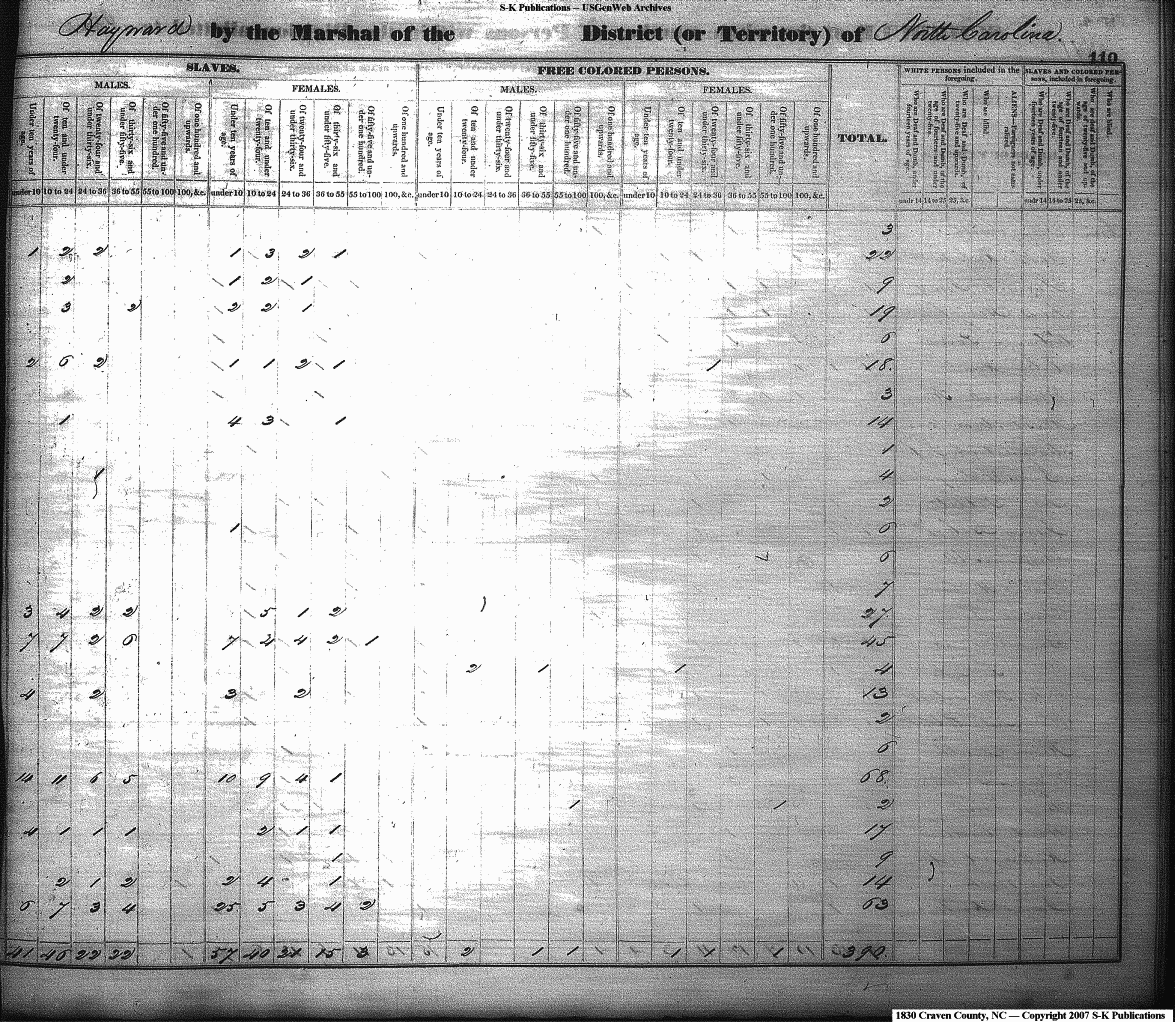 S-K Publications – USGenWeb Archives
Hayward by the Marshal of the District (or Territory) of North Carolina.
119
SLAVES. FREE COLORED PERSONS. WHITE PERSONS included in the foregoing. SLAVES AND COLORED PERSONS, included in foregoing.
MALES. FEMALES. MALES. FEMALES.
Under ten years of age. Of ten and under twenty-four. Of twenty-four and under thirty-six. Of thirty-six and under fifty-five. Of fifty-five and under one hundred. Of one hundred and upwards. Under ten years of age. Of ten and under twenty-four. Of twenty-four and under thirty-six. Of thirty-six and under fifty-five. Of fifty-five and under one hundred. Of one hundred and upwards. Under ten years of age. Of ten and under twenty-four. Of twenty-four and under thirty-six. Of thirty-six and under fifty-five. Of fifty-five and under one hundred. Of one hundred and upwards. Under ten years of age. Of ten and under twenty-four. Of twenty-four and under thirty-six. Of thirty-six and under fifty-five. Of fifty-five and under one hundred. Of one hundred and upwards. TOTAL.
under 10 10 to 24 24 to 36 36 to 55 55 to 100 100, &c. under 10 10 to 24 24 to 36 36 to 55 55 to 100 100, &c. under 10 10 to 24 24 to 36 36 to 55 55 to 100 100, &c. under 10 10 to 24 24 to 36 36 to 55 55 to 100 100, &c. undr 14 14 to 25 25, &c. undr 14 14 to 25 25, &c.
3
1 2 2 1 3 2 1 22
2 1 2 1 9
3 2 2 2 1 19
6
2 6 2 1 1 2 1 1 18
3
1 4 3 1 14
1
4
2
1 6
6
7
3 4 2 2 5 1 2 27
7 7 2 6 7 4 4 2 1 45
2 1 1 4
4 2 3 2 13
2
6
14 11 6 5 10 9 4 1 68
1 1 2
4 1 1 1 2 1 1 17
1 9
2 1 2 2 4 1 14
6 7 3 4 25 5 3 4 2 63
41 46 22 22 57 40 15 3 2 1 1 1 1 390
1830 Craven County, NC — Copyright 2007 S-K Publications